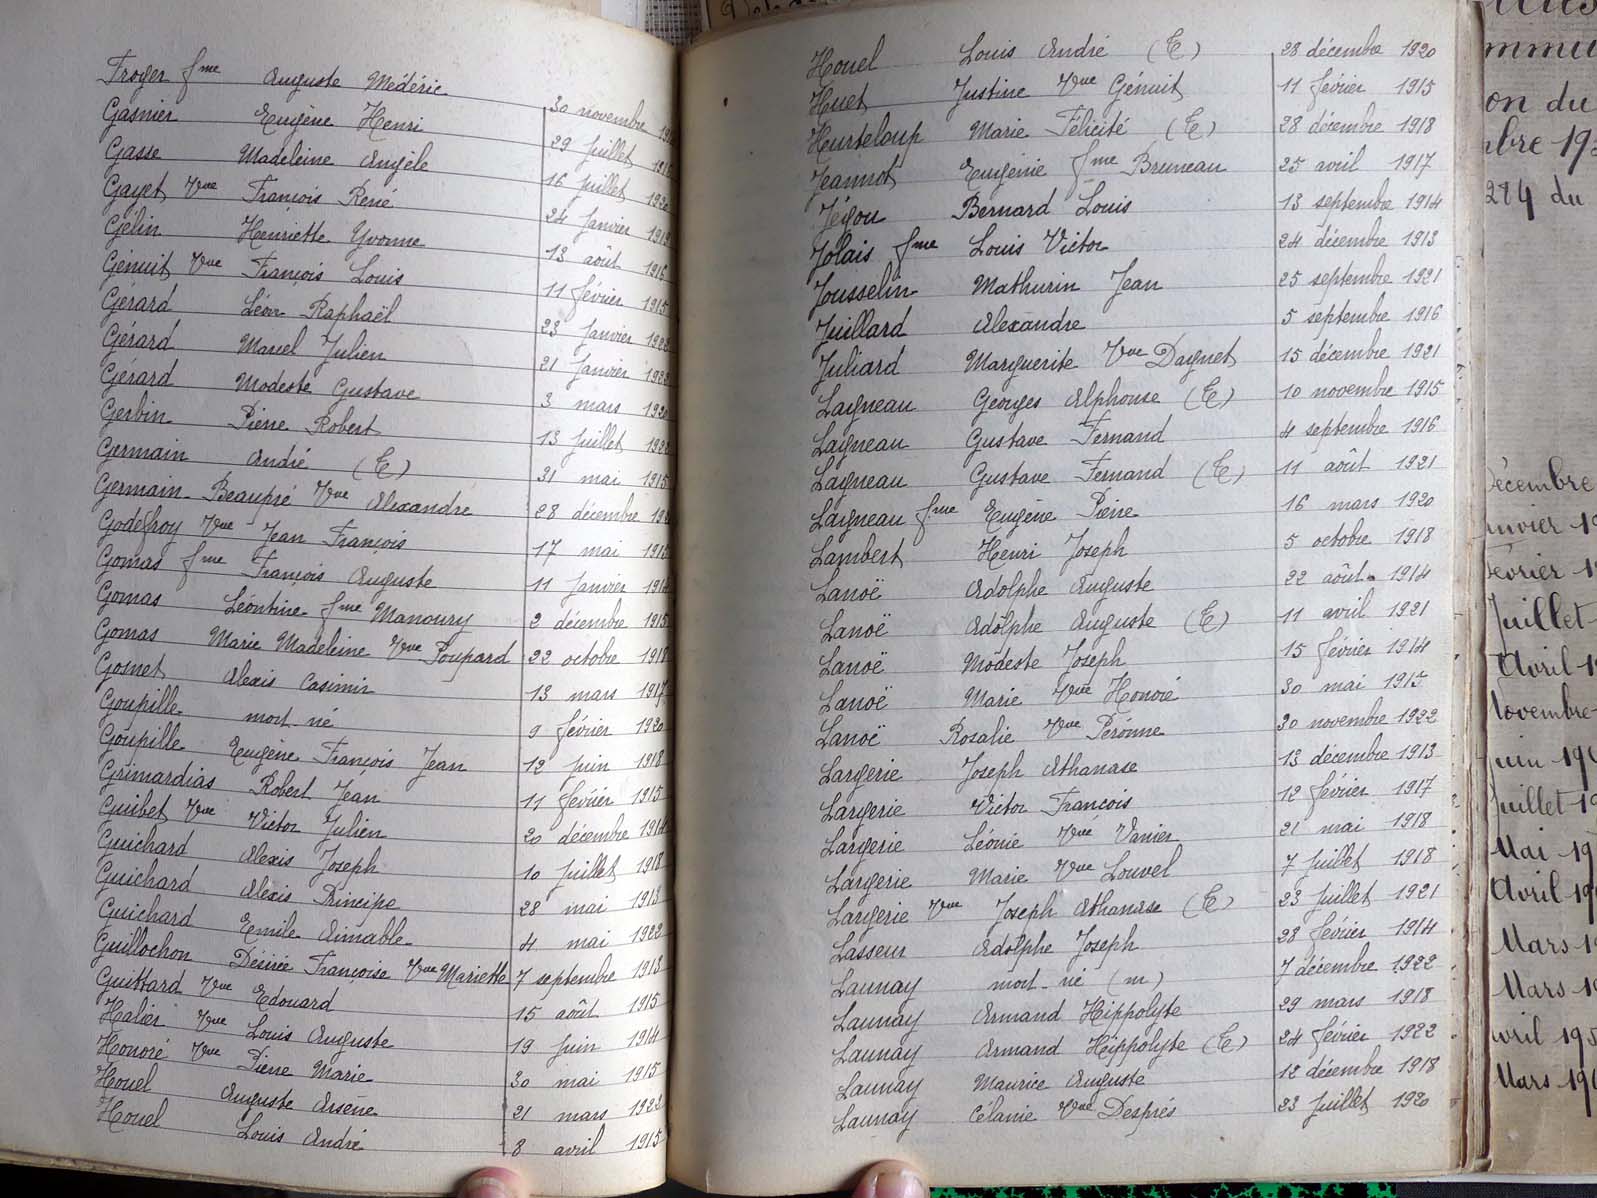 Froger fme Auguste Médéric 30 novembre
Gasnier Eugène Henri 29 juillet
Gasse Madeleine Angèle 16 juillet 1920
Gayet Vve François René 24 janvier
Gélin Henriette Yvonne 13 août 1916
Génuit Vve François Louis 11 février 1915
Gérard Léon Raphaël 23 janvier
Gérard Marcel Julien 21 janvier
Gérard Modeste Gustave 3 mars 1920
Gerbin Pierre Robert 13 juillet
Germain André (E) 31 mai 1915
Germain-Beaupré Vve Alexandre 28 décembre
Godefroy Vve Jean François 17 mai
Gomas fme François Auguste 11 janvier 1914
Gomas Léontine fme Manoury 2 décembre 1915
Gomas Marie Madeleine Vve Poupard 22 octobre 1918
Gosnet Alexis Casimir 13 mars 1917
Goupille mort né 9 février 1920
Goupille Eugène François Jean 12 juin 1918
Grimardias Robert Jean 11 février 1915
Guibet Vve Victor Julien 20 décembre 1914
Guichard Alexis Joseph 10 juillet 1918
Guichard Alexis Principe 28 mai 1913
Guichard Emile Aimable 4 mai 1922
Guillochon Désirée Françoise Vve Mariette 7 septembre 1913
Guittard Vve Edouard 15 août 1915
Halier Vve Louis Auguste 19 juin 1914
Honoré Vve Pierre Marie 30 mai 1915
Houel Auguste Arsène 21 mars 1922
Houel Louis André 8 avril 1915
Houel Louis André (E) 23 décembre 1920
Huet Justine Vve Génuit 11 février 1915
Heurteloup Marie Félicité (E) 28 décembre 1918
Jeannot Eugénie fme Bruneau 25 avril 1917
Jégou Bernard Louis 13 septembre 1914
Jolais fme Louis Victor 24 décembre 1913
Jousselin Mathurin Jean 25 septembre 1921
Juillard Alexandre 5 septembre 1916
Juliard Marguerite Vve Daguet 15 décembre 1921
Laigneau Georges Alphonse (E) 10 novembre 1915
Laigneau Gustave Fernand 4 septembre 1916
Laigneau Gustave Fernand (E) 11 août 1921
Laigneau fme Eugène Pierre 16 mars 1920
Lambert Henri Joseph 5 octobre 1918
Lanoë Adolphe Auguste 22 août 1914
Lanoë Adolphe Auguste (E) 11 avril 1921
Lanoë Modeste Joseph 15 février 1914
Lanoë Marie Vve Honoré 30 mai 1915
Lanoë Rosalie Vve Péronne 30 novembre 1922
Largerie Joseph Athanase 13 décembre 1913
Largerie Victor François 12 février 1917
Largerie Léonie Vve Vanier 21 mai 1918
Largerie Marie Vve Louvel 7 juillet 1918
Largerie Vve Joseph Athanase (E) 23 juillet 1921
Lasseur Adolphe Joseph 28 février 1914
Launay mort-né (m) 7 décembre 1922
Launay Armand Hippolyte 29 mars 1918
Launay Armand Hippolyte (E) 24 février 1922
Launay Maurice Auguste 12 décembre 1918
Launay Célanie Vve Després 23 juillet 1920
on du
284 du
Juillet
Avril
Novembre
juin
juillet
Mai
Avril
Mars
Mars
Mars